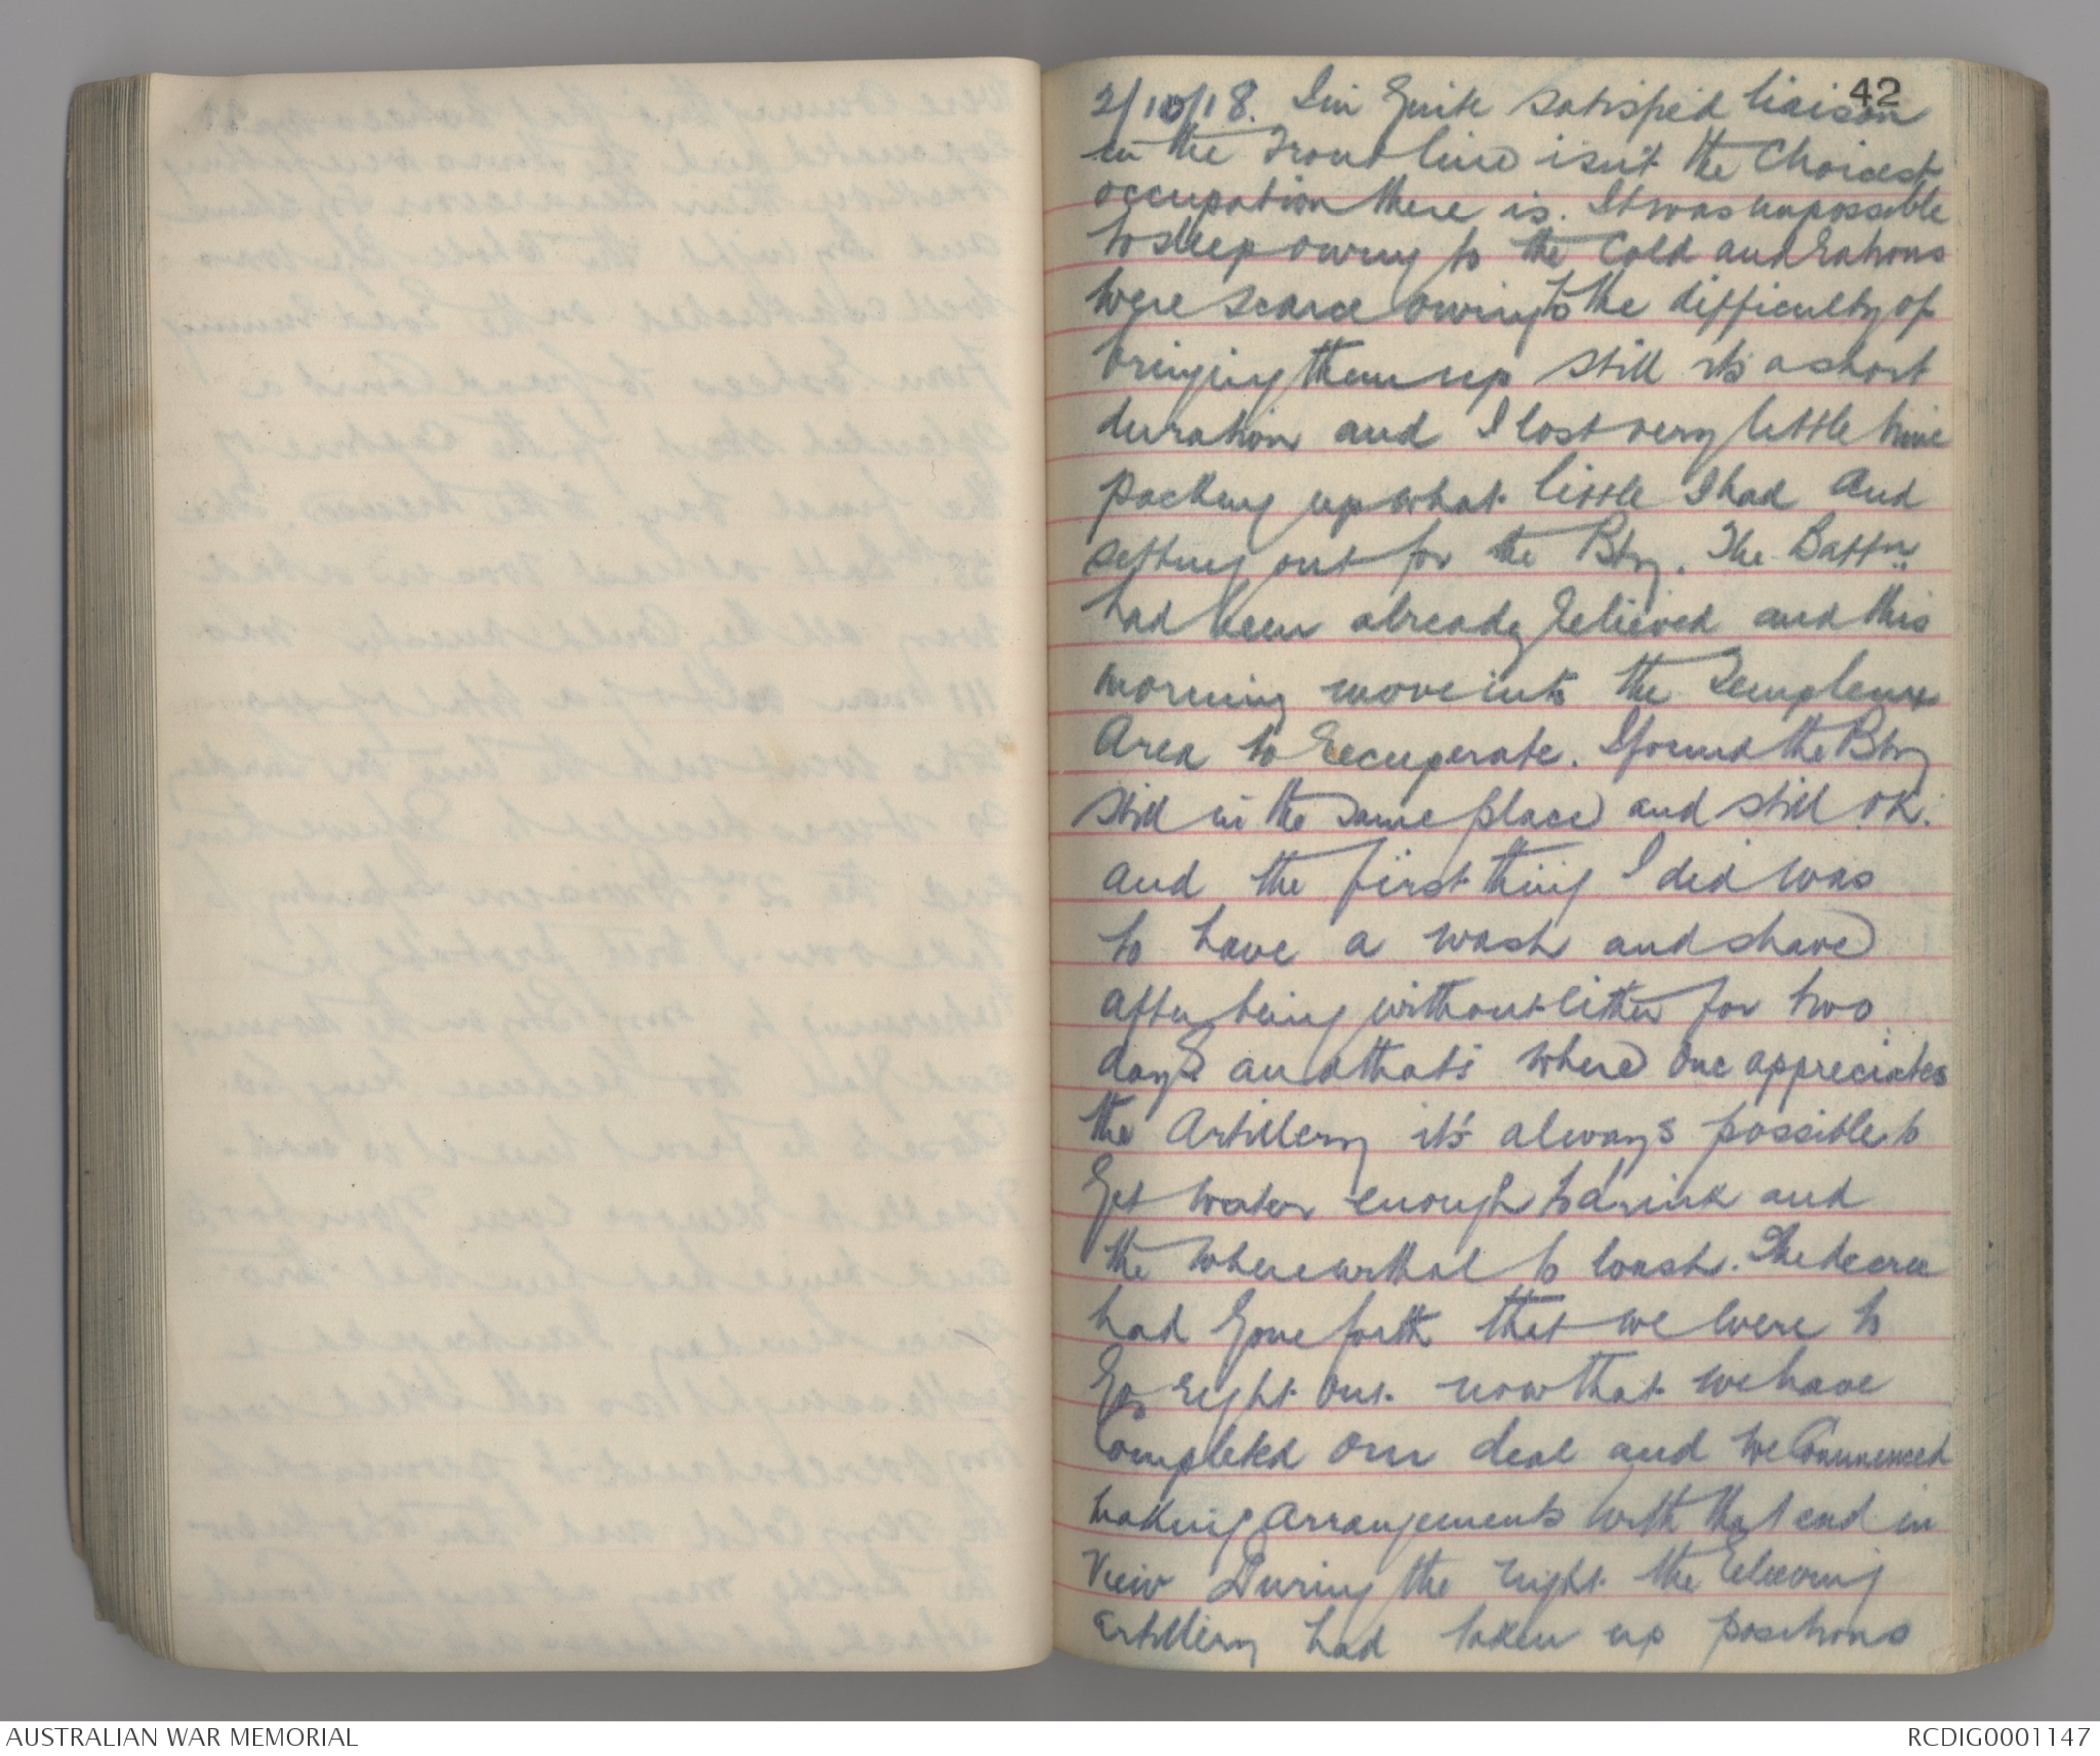 42
2/10/18. I'm quite satisfied liaison
in the Front line isn't the Choicest
occupation there is. It was impossible
to sleep owing to the Cold and rations
were scarce owing to the difficulty of
bringing them up still its a short
duration and I lost very little time
packing up what little I had and
setting out for the Bty. The Battn.
had been already relieved and this
morning move into the Templeux
Area to recuperate. I found the Bty
still in the same place and still OK.
and the first thing I did was
to have a wash and shave
after being without either for two
days and that's where one appreciates
the Artillery it's always possible to
get water enough to drink and
the wherewithal to wash. The decree
had gone forth that we were to
go right out now that we have
completed our deal and we Commenced
making arrangements with that end in
view During the night the relieving
artillery had taken up positions
AUSTRALIAN WAR MEMORIAL
RCDIG0001147